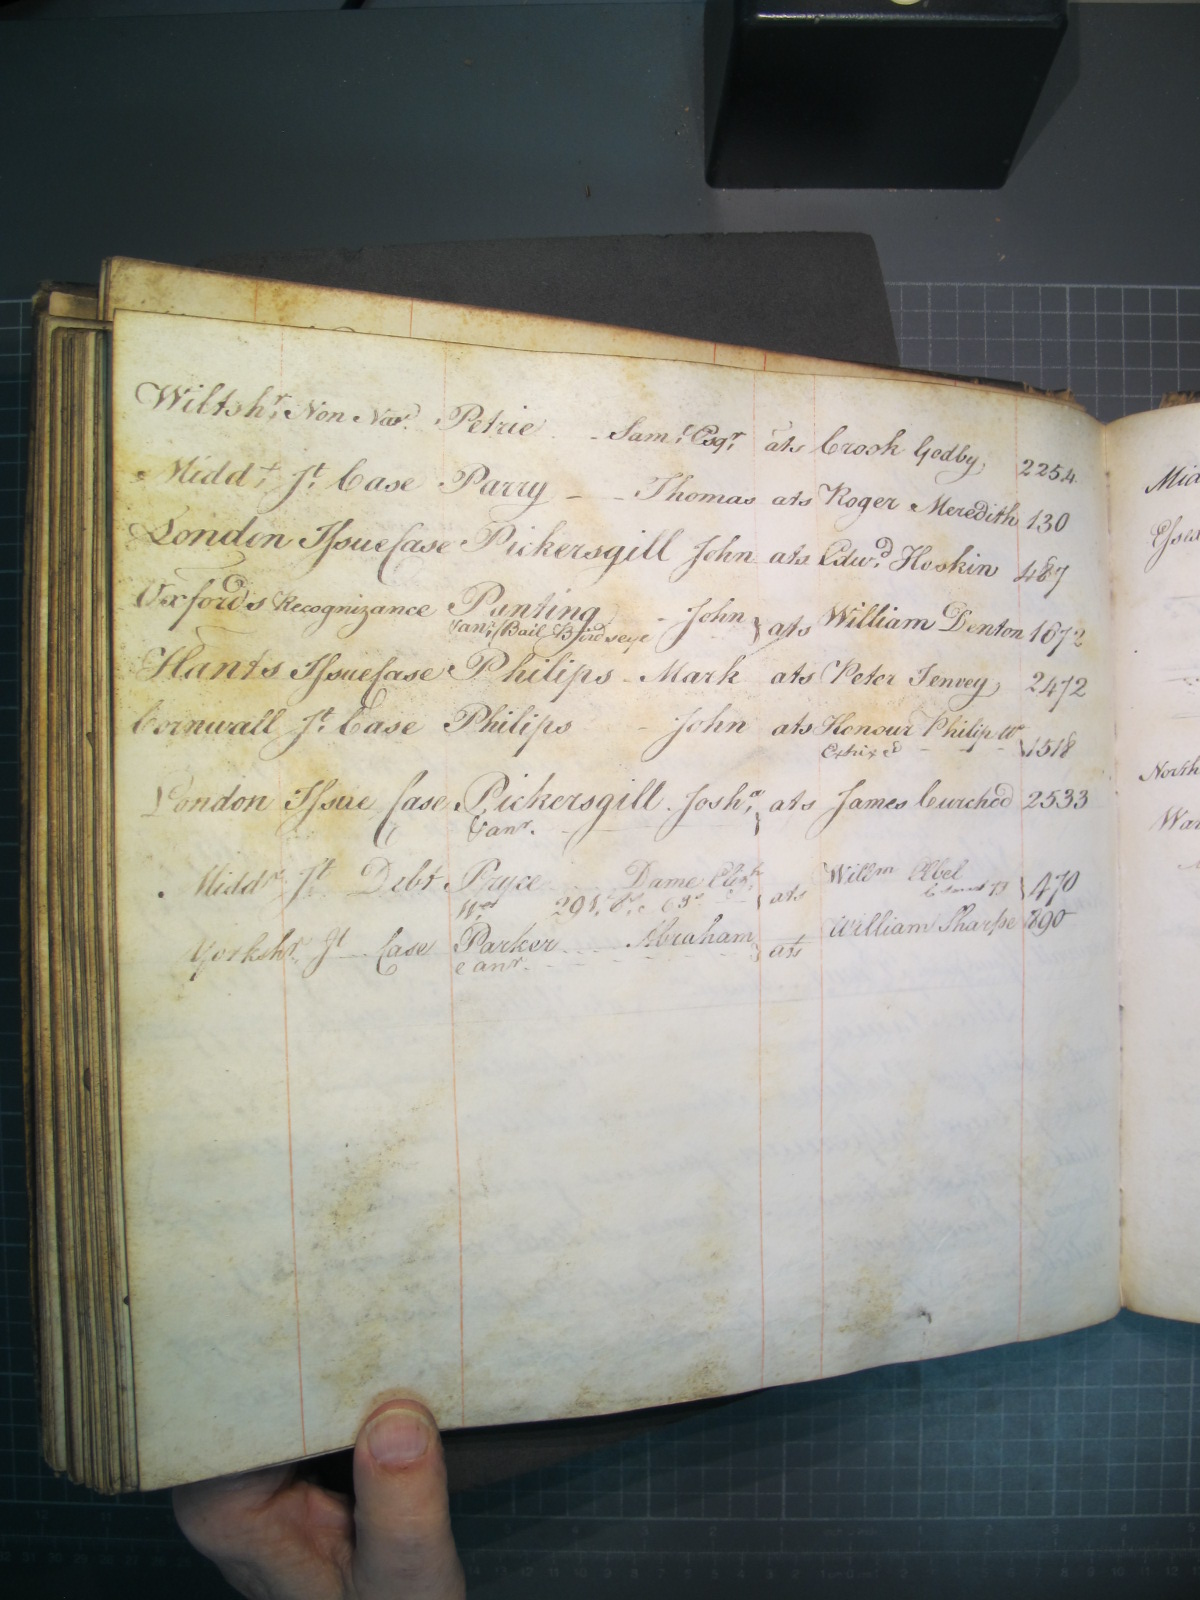 Wiltshr. Non Narr. Petrie - Saml. Esqr. ats Crook Godby, 2254
Middx Jt. Case Parry - - Thomas ats Roger Meredith 130
London Issue Case Pickersgill John ats Edwd. Hoskin 487
Oxfords Recognizance Punting - John } ats William Denton 1672
Hants Issue Case Philips - Mark ats Peter Jenvey, 2472
Cornwall Jt. Case Philips - John ats Honour Philip Wo
1518
London Issue Case Pickersgill Josha. ats James Curched 2533
Vanr.
Middx Jt Debt Pryce Dame Elizh ats Willm Abel 470
Yorkshr Jt Case Parker Abraham } ats William Sharpe 890
e anr.
Mid
North
War